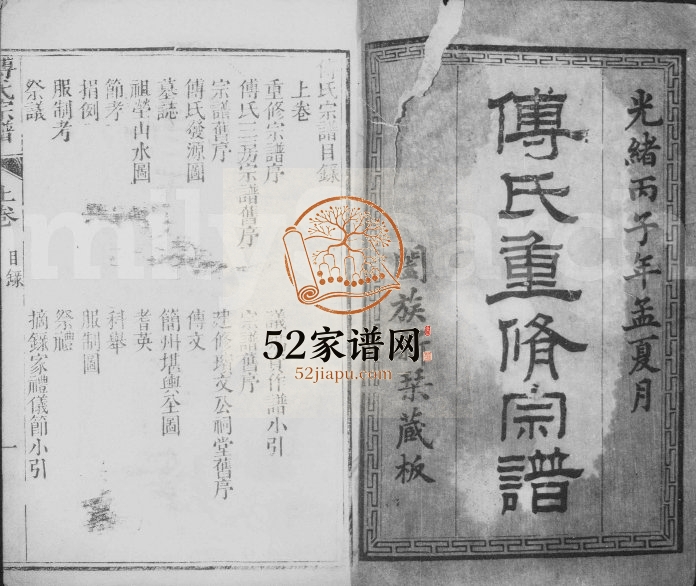 光緒丙子年孟夏月
傅氏重脩宗譜
闔族 栞藏板
傅氏宗譜目錄
上卷
重修宗譜序
傅氏三房宗譜舊序
宗譜舊序
傅氏發源圖
墓誌
祖塋山水圖
節考
捐例
服制考
祭議
譜小引
宗譜舊序
建修 文公祠堂舊序
傳文
簡州堪輿全圖
耆英
科舉
服制圖
祭禮
摘錄家禮儀節小引
傅氏宗譜
上卷
目錄
一
52家谱网
52jiapu.com